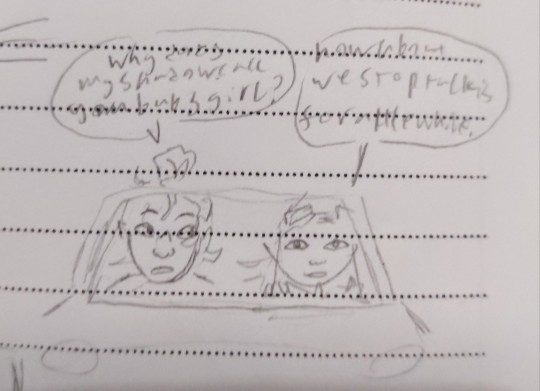 why does
my shadow call
you bunks girl?
how about
we stop talking
for a little while.